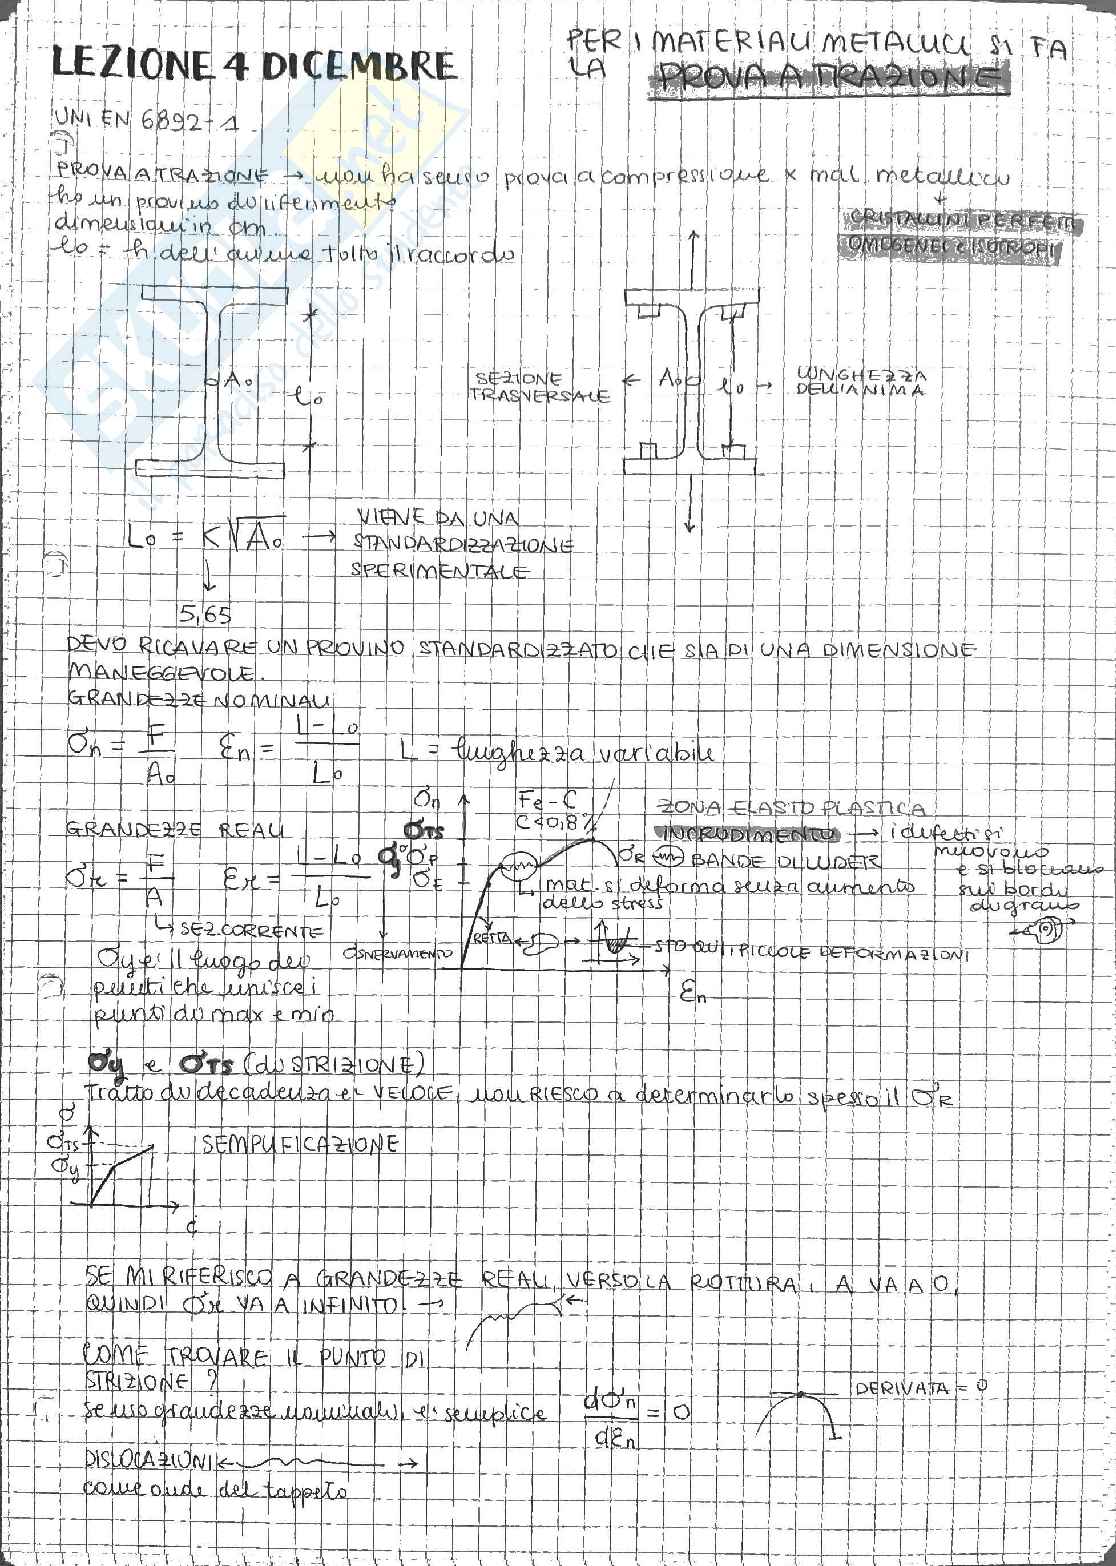 LEZIONE 4 DICEMBRE
PER I MATERIALI METALLICI SI FA
LA PROVA A TRAZIONE
UNI EN 6892-1
PROVA A TRAZIONE → non ha senso prova a compressione x mat. metallico
ho un provino di riferimento
dimensioni in cm
l0 = h dell'anima tolto il raccordo
CRISTALLINI PERFETTI
OMOGENEI e ISOTROPI
A0
l0
SEZIONE
TRASVERSALE
← A0
l0 →
LUNGHEZZA
DELL'ANIMA
L0 = K√A0 →
VIENE DA UNA
STANDARDIZZAZIONE
SPERIMENTALE
5,65
DEVO RICAVARE UN PROVINO STANDARDIZZATO CHE SIA DI UNA DIMENSIONE
MANEGGEVOLE.
GRANDEZZE NOMINALI
σn = F/A0 εn = (L-L0)/L0 L = lunghezza variabile
GRANDEZZE REALI
σr = F/A εr = (L-L0)/L0
↳ SEZ. CORRENTE
σn
σTS
σy σP
σE
Fe-C
C<0,8%
σR
ZONA ELASTO PLASTICA
INCRUDIMENTO → i difetti si
muovono
e si bloccano
sui bordi
di grano
BANDE DI LUDER
mat. si deforma senza aumento
dello stress
RETTA
σSNERVAMENTO
STO QUI, PICCOLE DEFORMAZIONI
εn
σy è il luogo dei
punti che unisce i
punti di max e min
σy e σTS (di STRIZIONE)
Tratto di decadenza è VELOCE, non RIESCO a determinarlo spesso il σR
σ
σTS
σy
SEMPLIFICAZIONE
SE MI RIFERISCO A GRANDEZZE REALI, VERSO LA ROTTURA, A VA A 0,
QUINDI σr VA A INFINITO →
COME TROVARE IL PUNTO DI
STRIZIONE?
se uso grandezze nominali, è semplice dσn/dεn = 0
DERIVATA = 0
DISLOCAZIONI
come onde del tappeto